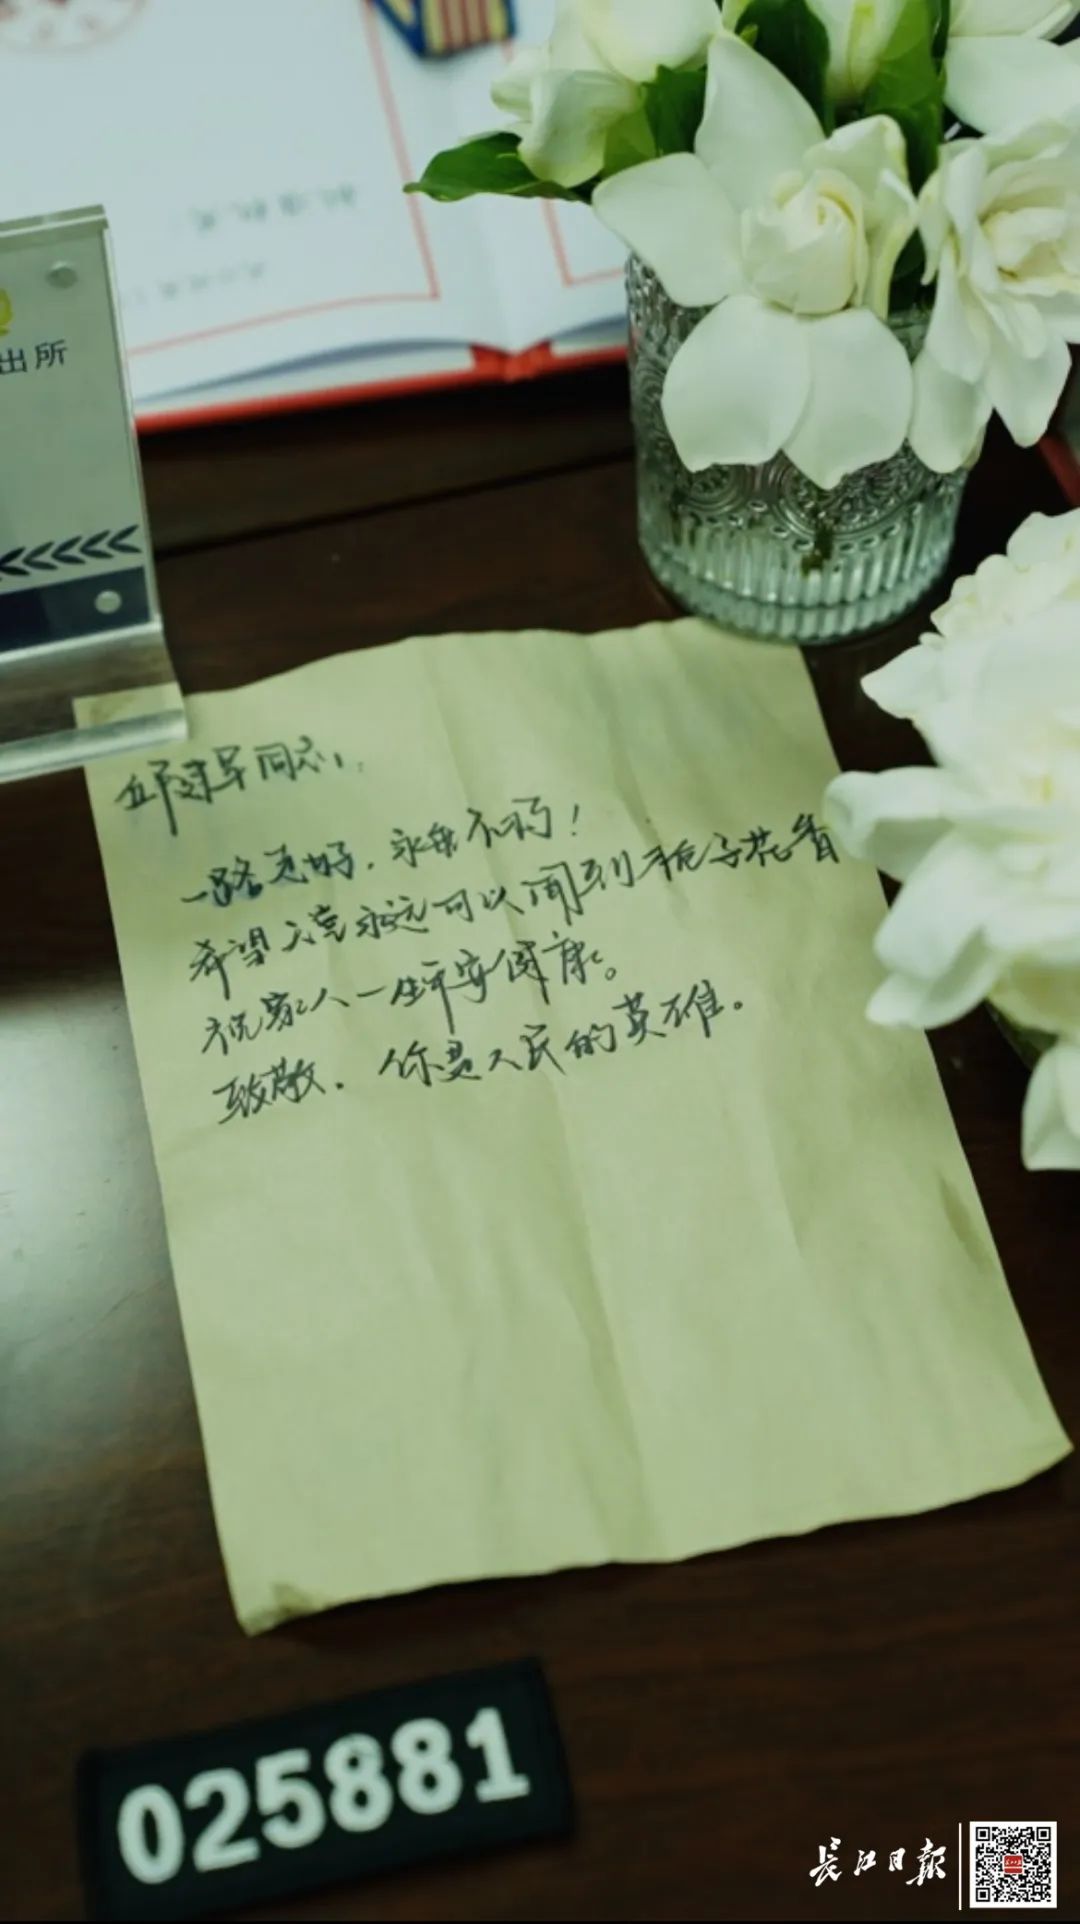 出所
邱建军同志：
一路走好，永垂不朽！
希望天堂永远可以闻到栀子花香
祝家人一生平安健康。
致敬，你是人民的英雄。
025881
长江日报